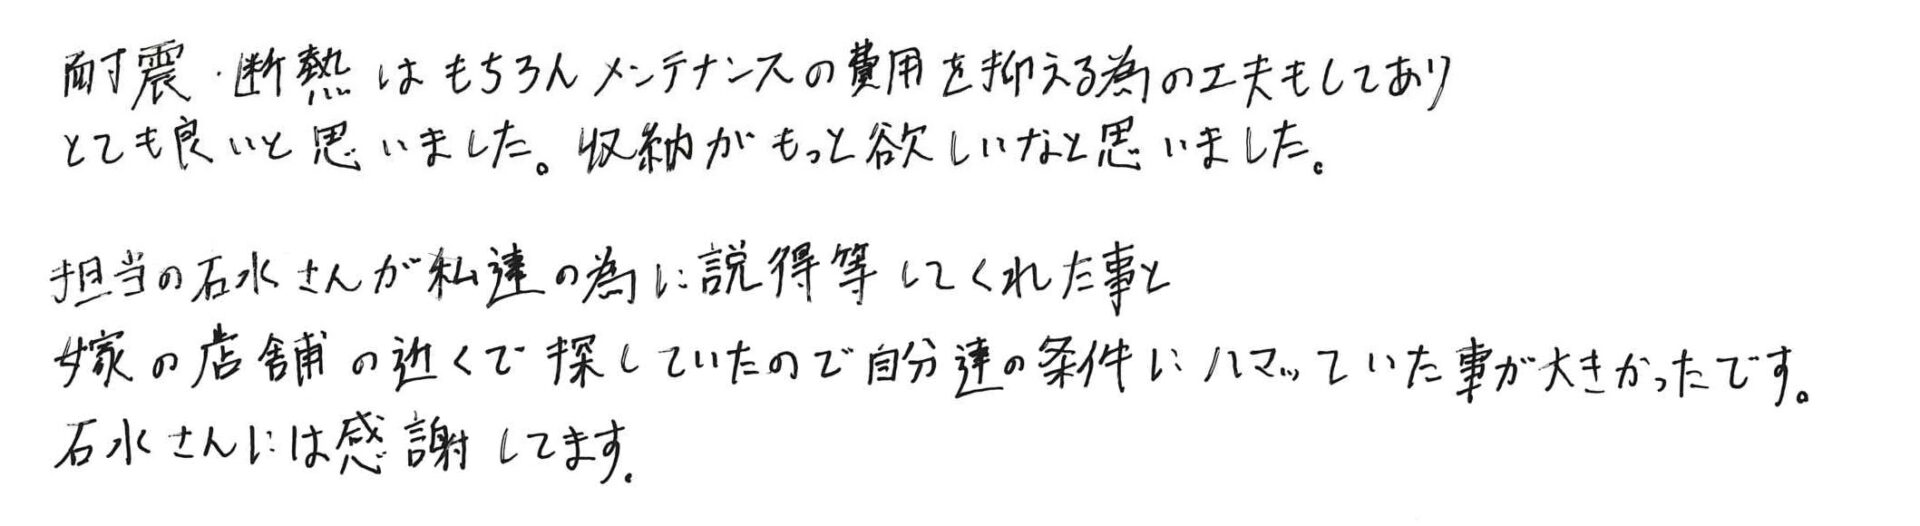 耐震・断熱はもちろんメンテナンスの費用を抑える為の工夫もしてあり
とても良いと思いました。収納がもっと欲しいなと思いました。
担当の石水さんが私達の為に説得等してくれた事と
嫁の店舗の近くで探していたので自分達の条件にハマッていた事が大きかったです。
石水さんには感謝してます。